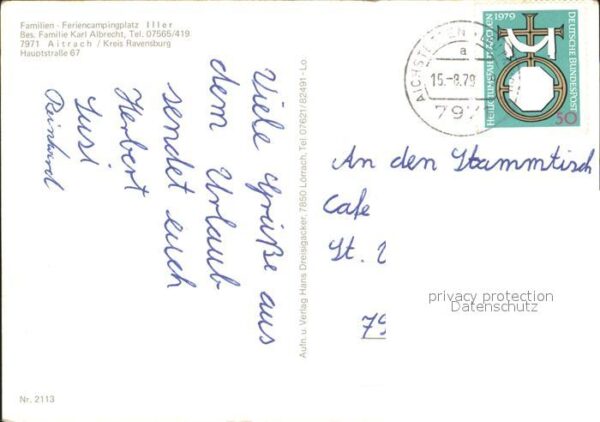 Familien - Feriencampingplatz Iller
Bes. Familie Karl Albrecht, Tel. 07565/419
7971 Aitrach / Kreis Ravensburg
Hauptstraße 67
Viele Grüße aus
dem Urlaub
sendet euch
Herbert
Susi
Reinhard
Nr. 2113
Aufn. u. Verlag Hans Dreisigacker, 7850 Lörrach, Tel 07621/82491-Lo.
15.-8.79
a
797
1979
DEUTSCHE BUNDESPOST
50
An den Stammtisch
Cafe
St.
79
privacy protection
Datenschutz